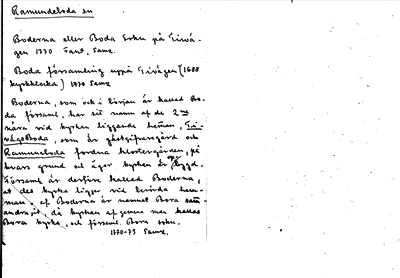 Ramundeboda en
Boderna eller Boda Sokn på Tivä-
gen 1770 Fant, Saml.
Boda församling uppå Tivägen (1688
kyrkklocka) 1770 Saml
Boderna, som ock i början är kallad Bo-
da församl, har sit namn af de 2ne
nära vid kyrkan liggande hemen, Ti-
vägsBoda, som är gästgifvaregård och
Ramunneboda fordna klostergården, på
hvars grund ock äger kyrkan är bygd.
Församl är derföre kallad Boderna,
at des kyrka ligger vid berörda hem-
man af Boderna är namnet Bora
andragit, då kyrkan af gemene man kallas
Bora kyrka, och församl. Bora sokn.
1770-73 Saml.